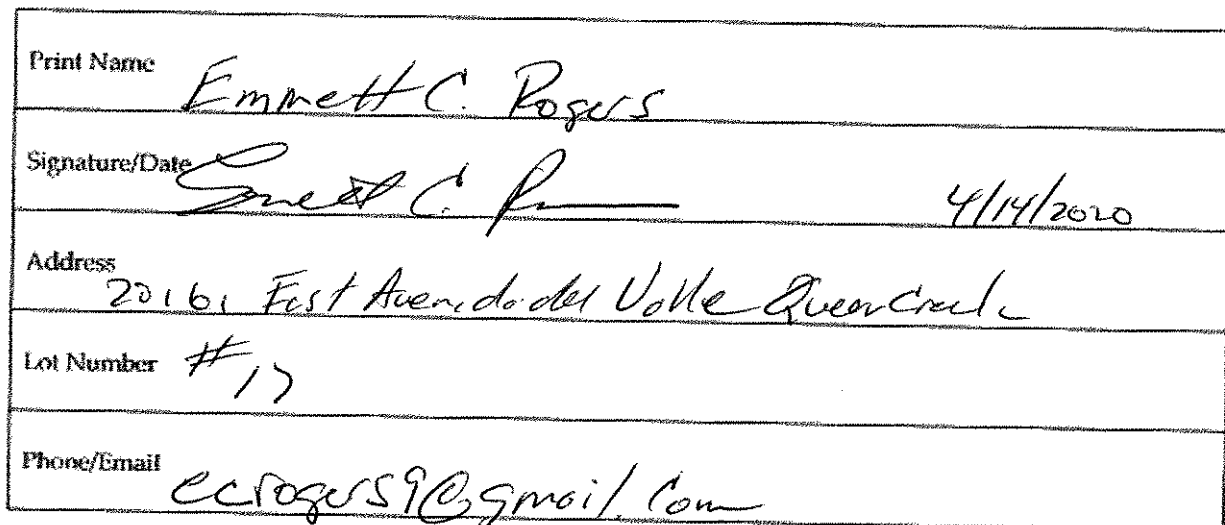 Print Name Emmett C. Rogers
Signature/Date Emmett C. R 4/14/2020
Address 20161 East Avenida del Valle Queen Creek
Lot Number #17
Phone/Email ecrogers9@gmail.com